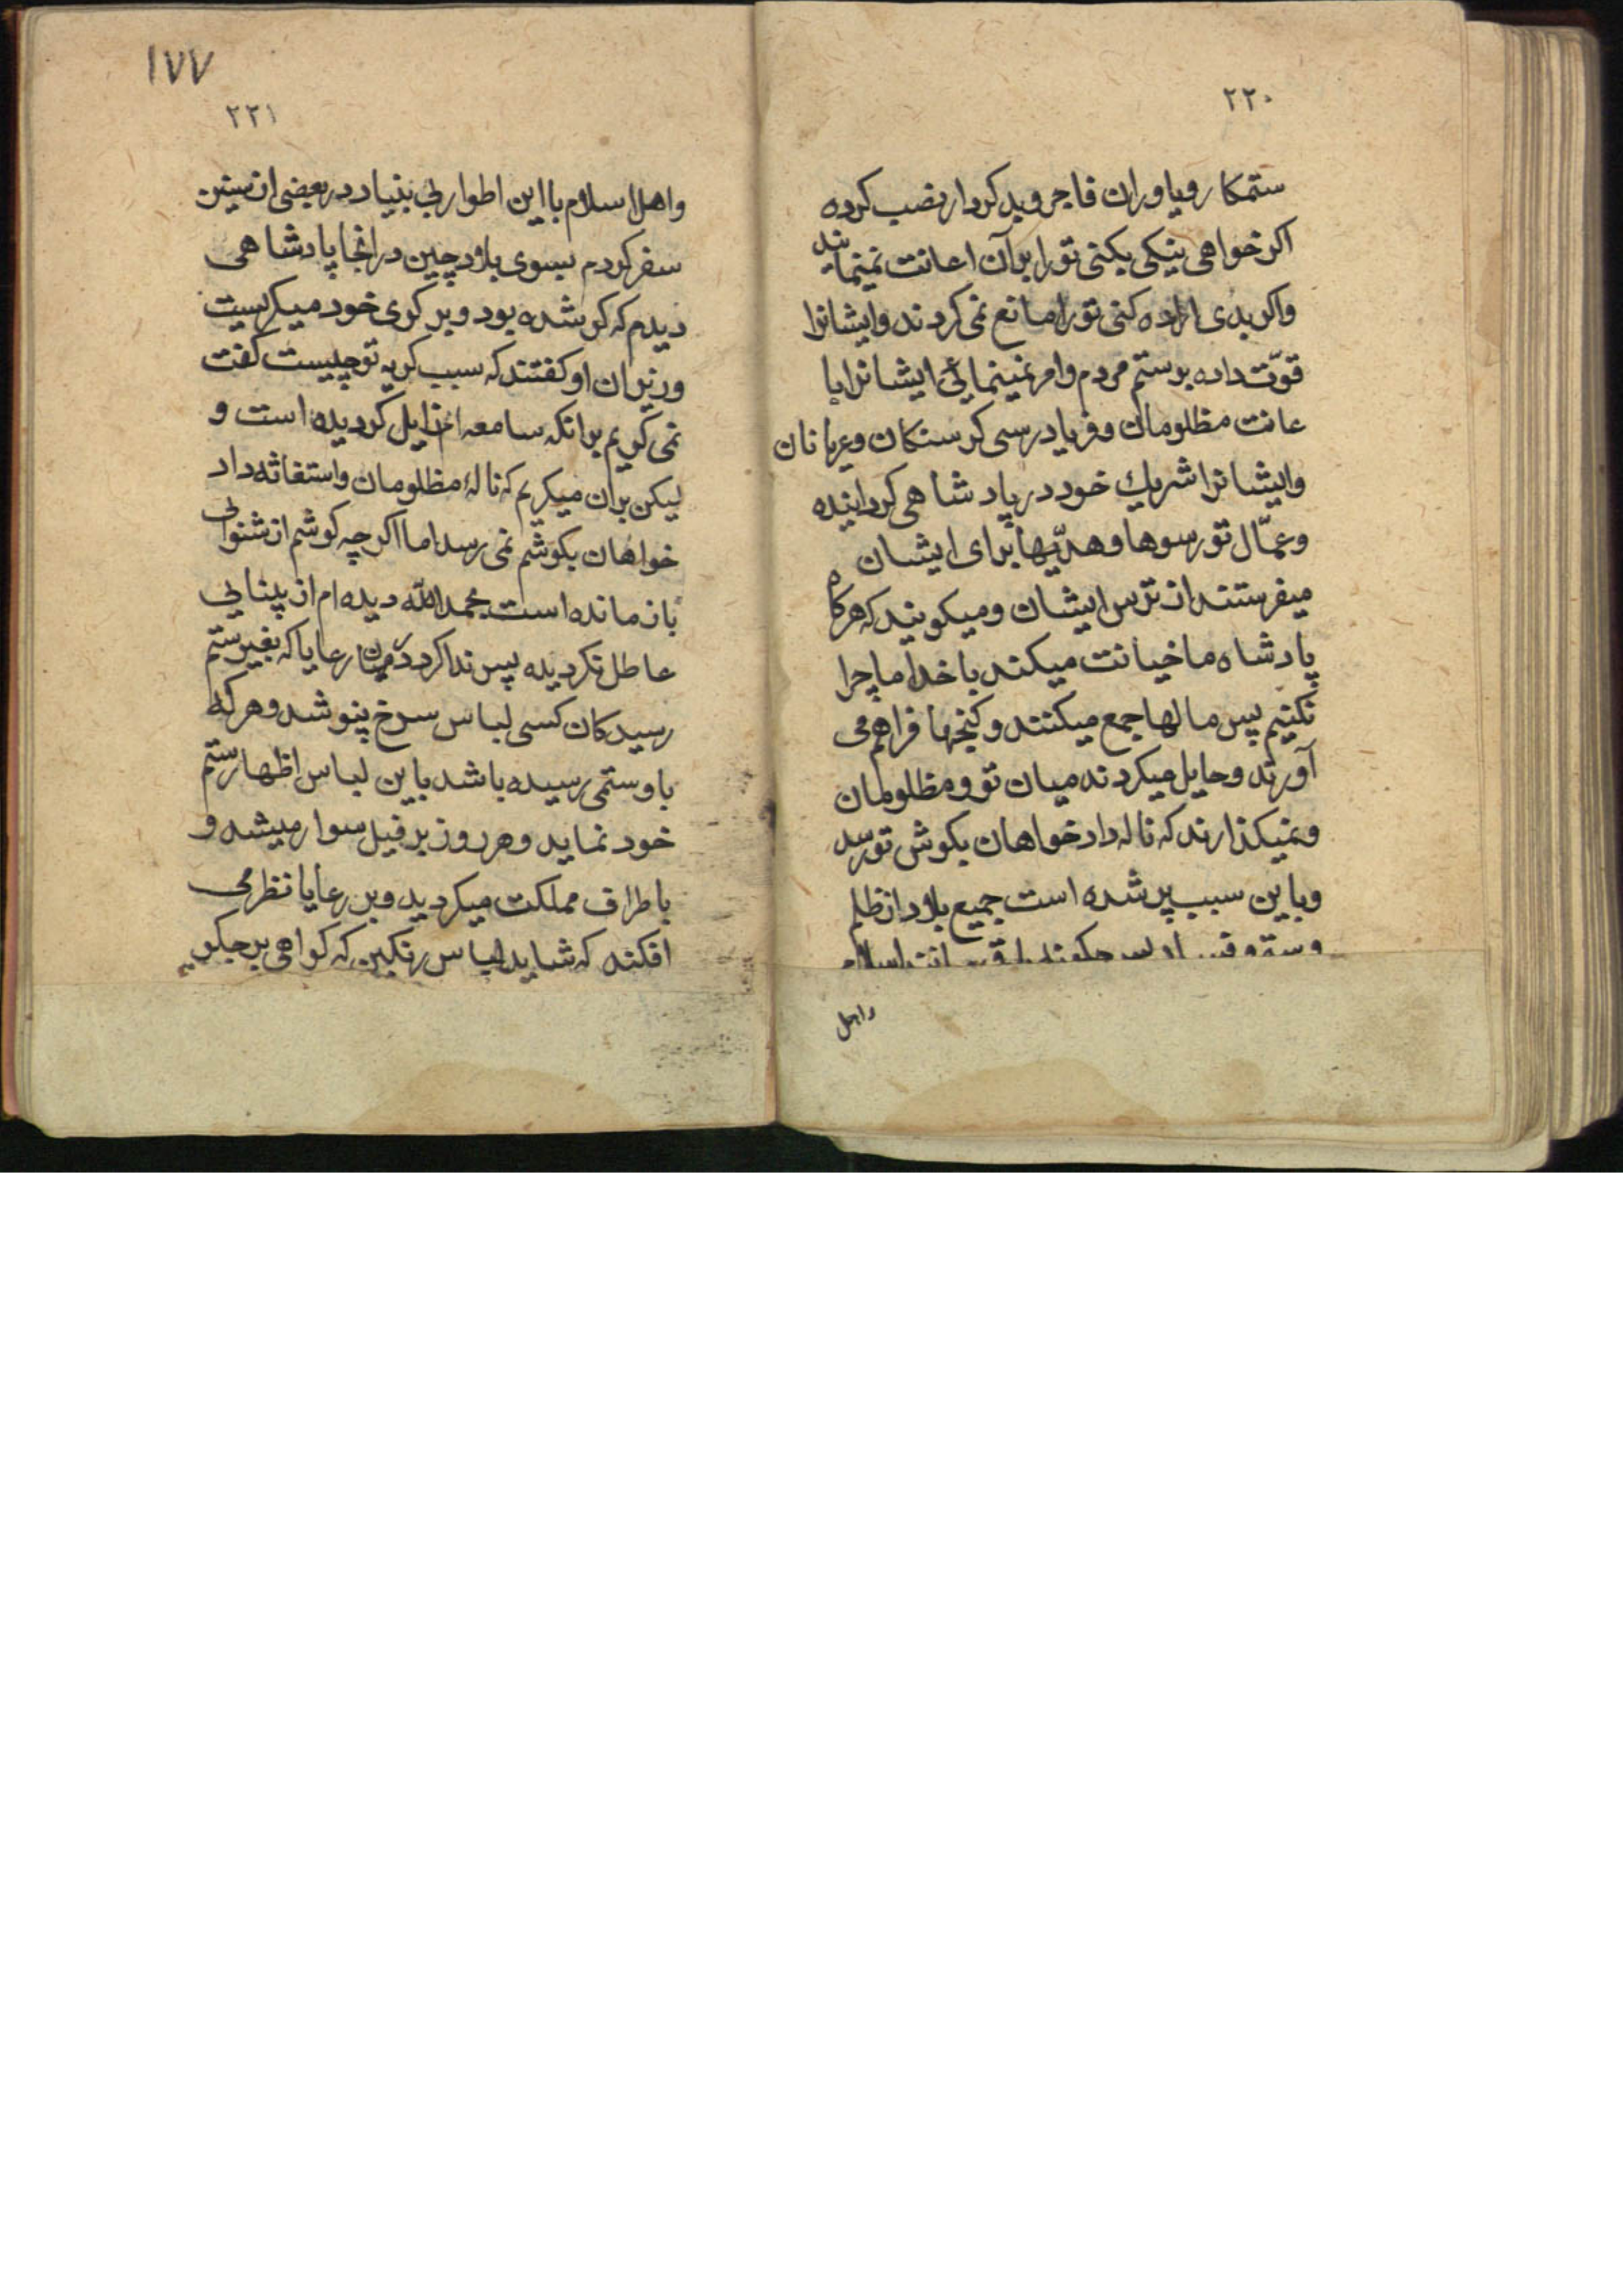 ٢٢٠
ستمکار ویاوران فاجر وبد کردار نصب کرده
اکر خواهی نیکی بکنی تورا بر آن اعانت نمینمایند
واکر بدی اراده کنی تورا مانع نمی کردند وایشانرا
قوّت داده بر ستم مردم وامر نمینمائی ایشانرا با
عانت مظلومان وفریادرسی کرسنکان وعریانان
وایشانرا شریك خود در پادشاهی کردانیده
وعمّال تو رسوها وهدیّها برای ایشان
میفرستند از ترس ایشان ومیکویند که هرکاه
پادشاه ما خیانت میکند با خدا ما چرا
نکنیم پس مالها جمع میکنند وکنجها فراهم می
آورند وحایل میکردند میان تو ومظلومان
ونمیکذارند که ناله دادخواهان بکوش تو رسد
وباین سبب پر شده است جمیع بلاد از ظلم
واهل
١٧٧
٢٢١
واهل اسلام با این اطوار بی بنیاد در بعضی از سنین
سفر کردم بسوی بلاد چین در انجا پادشاهی
دیدم که کر شده بود وبر کری خود میکریست
وزیران او کفتند که سبب کریه تو چیست کفت
نمی کریم برانکه سامعه ام زایل کردیده است و
لیکن بران میکریم که نالهٔ مظلومان واستغاثه داد
خواهان بکوشم نمی رسد اما اکرچه کوشم از شنوایی
باز مانده است بحمد الله دیده ام از بینایی
عاطل نکردیده پس ندا کرد در میان رعایا که بغیر ستم
رسیدکان کسی لباس سرخ پنوشد وهرکه
باو ستمی رسیده باشد باین لباس اظهار ستم
خود نماید وهر روز بر فیل سوار میشد و
باطراف مملکت میکردید وبر رعایا نظر می
افکند که شاید لباس رنکین که کواهی بر جکر